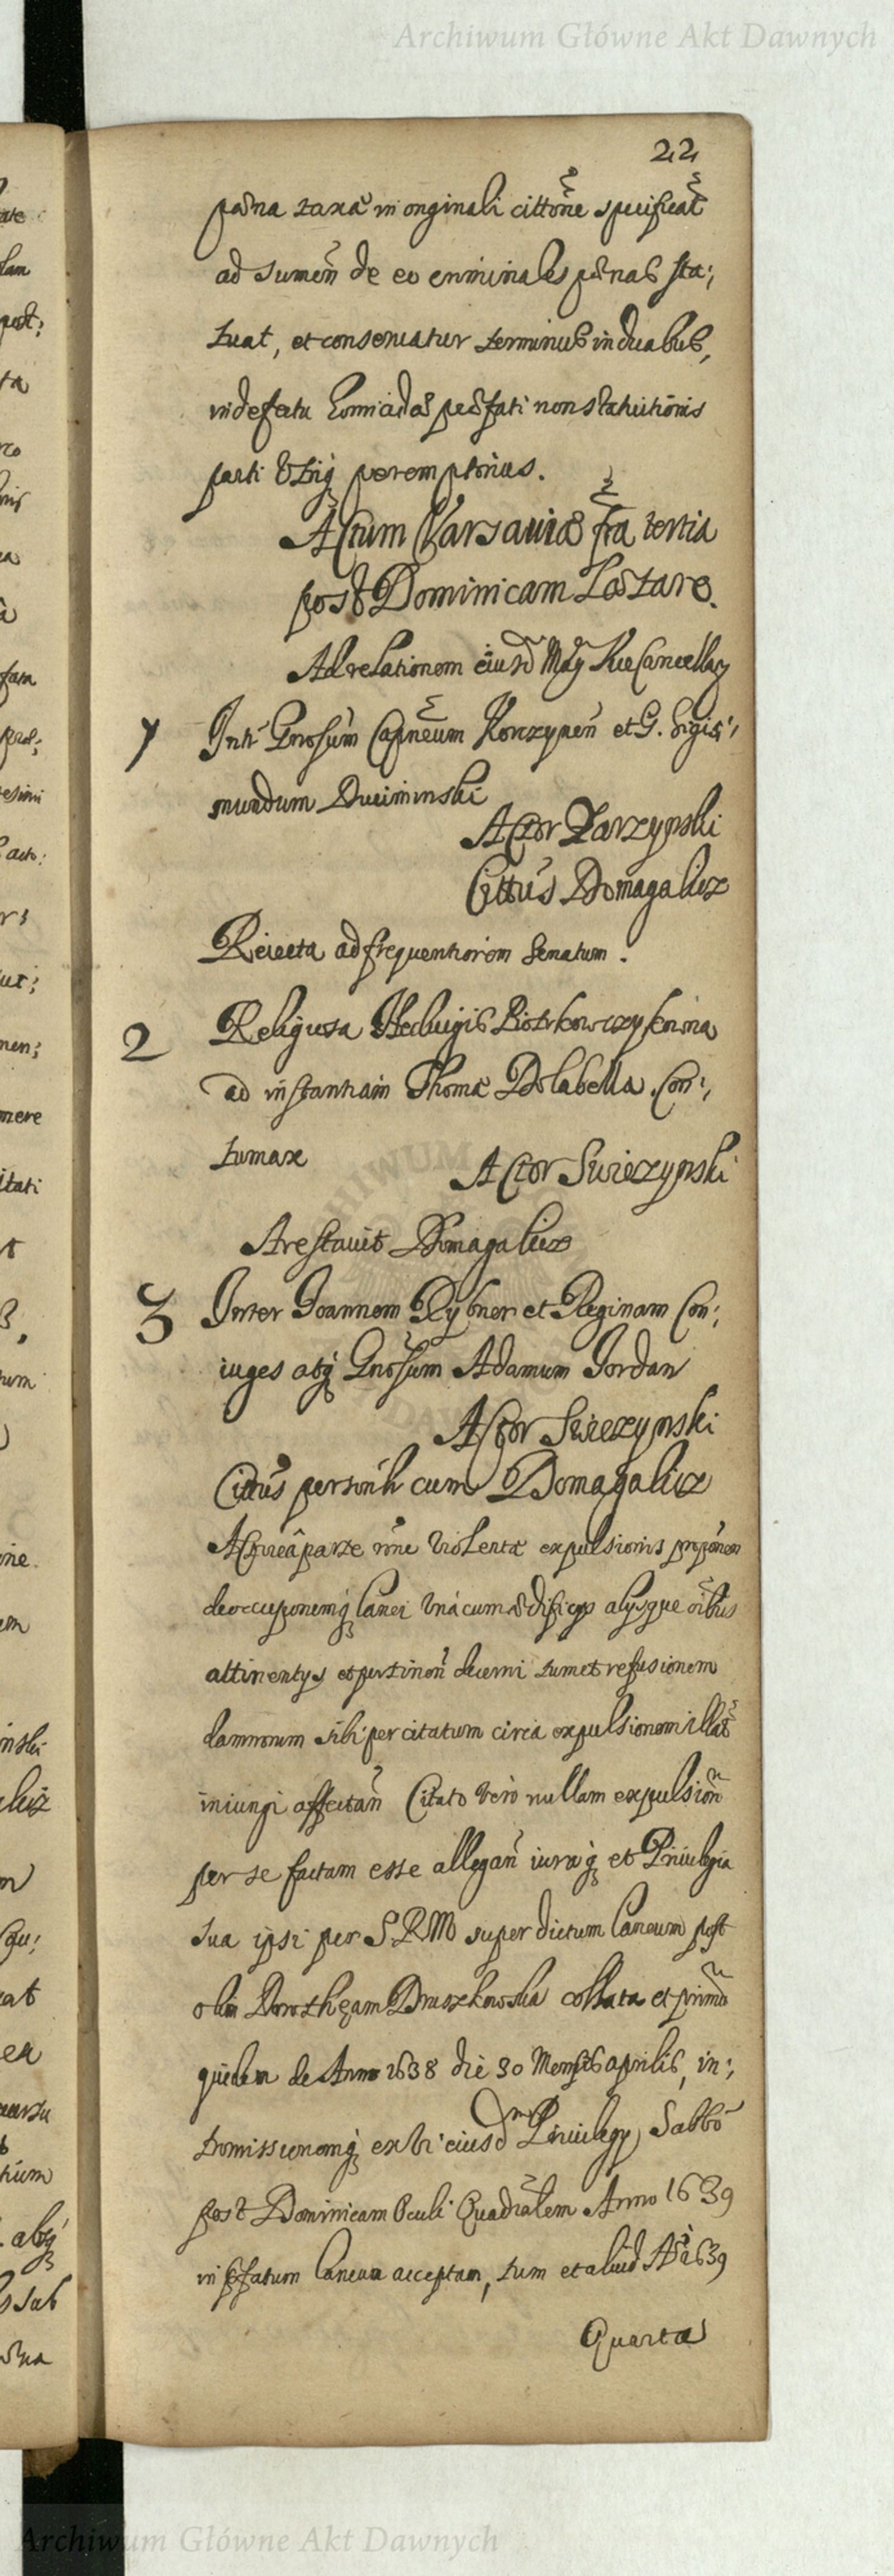 Archiwum Główne Akt Dawnych
22
pæna taxæ in originali cittõne specificat
ad sumen de eo criminales pænas sta;,
tuat, et conseruatur terminus in duabus,
in defectu homicidæ præfati non statuitionis
parti Vtriq peremptorius.
Actum Varsauiæ fra tertia
post Dominicam Lætare.
Ad relationem eiusd Mag Vice Cancellarÿ
1 Intr Gnosum Capneum Korczynen et G. Sigis;,
mundum Duciminski
Actor Zarzynski
Cittus Domagalicz
Reiecta ad frequentiorem Senatum.
2 Religiosa Heduigis Piotrkowczykowna
ad instantiam Thomæ Dolabella. Con;,
tumax
Actor Swiezynski
Arestauit Domagalicz
3 Inter Joannem Rybner et Reginam Con;
iuges atq Gnosum Adamum Jordan
Actor Swiezynski
Cittus personlr cum Domagalicz
Actoreâ parte rõne violentæ expulsionis proponen
de occuponemq Lanei vná cum ædificÿs alÿsque oibus
attinentÿs et pertinen decerni tum et refusionem
damnorum sibi per citatum circa expulsionem illat
iniungi affectan Citato verò nullam expulsion
per se factam esse allegan iuraq et Priuilegia
sua ipsi per S.R.M super dictum Laneum post
olim Dorotheam Druszkowska collata et primo
quidem de Anno 1638 die 30 Mensis aprilis, in;,
tromissionemq ex vi eiusd Priuilegÿ Sabbo
post Dominicam Oculi Quadralem Anno 1639
in pfatum Laneum acceptam, tum et aliud Ao 1639
Quarta
Archiwum Główne Akt Dawnych